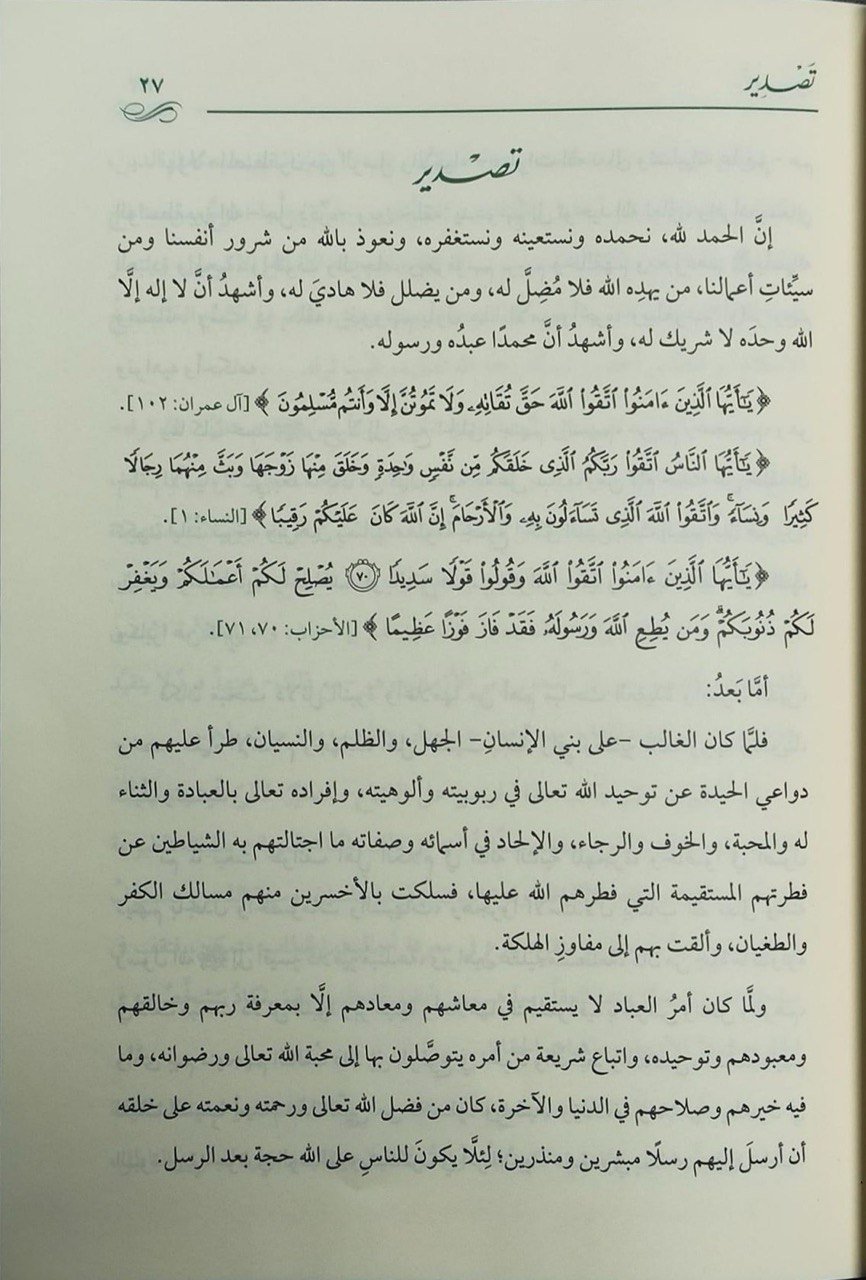 تَصْدِير
٢٧
تصْدِير
إنَّ الحمد لله، نحمده ونستعينه ونستغفره، ونعوذ بالله من شرور أنفسنا ومن
سيِّئاتِ أعمالنا، من يهدِه الله فلا مُضِلَّ له، ومن يضلل فلا هاديَ له، وأشهدُ أنَّ لا إله إلَّا
الله وحدَه لا شريك له، وأشهدُ أنَّ محمدًا عبدُه ورسوله.
﴿ يَٰٓأَيُّهَا ٱلَّذِينَ ءَامَنُوا۟ ٱتَّقُوا۟ ٱللَّهَ حَقَّ تُقَاتِهِۦ وَلَا تَمُوتُنَّ إِلَّا وَأَنتُم مُّسْلِمُونَ ﴾ [آل عمران: ١٠٢].
﴿ يَٰٓأَيُّهَا ٱلنَّاسُ ٱتَّقُوا۟ رَبَّكُمُ ٱلَّذِى خَلَقَكُم مِّن نَّفْسٍ وَٰحِدَةٍ وَخَلَقَ مِنْهَا زَوْجَهَا وَبَثَّ مِنْهُمَا رِجَالًا
كَثِيرًا وَنِسَآءً ۚ وَٱتَّقُوا۟ ٱللَّهَ ٱلَّذِى تَسَآءَلُونَ بِهِۦ وَٱلْأَرْحَامَ ۚ إِنَّ ٱللَّهَ كَانَ عَلَيْكُمْ رَقِيبًا ﴾ [النساء: ١].
﴿ يَٰٓأَيُّهَا ٱلَّذِينَ ءَامَنُوا۟ ٱتَّقُوا۟ ٱللَّهَ وَقُولُوا۟ قَوْلًا سَدِيدًا ٧٠ يُصْلِحْ لَكُمْ أَعْمَٰلَكُمْ وَيَغْفِرْ
لَكُمْ ذُنُوبَكُمْ ۗ وَمَن يُطِعِ ٱللَّهَ وَرَسُولَهُۥ فَقَدْ فَازَ فَوْزًا عَظِيمًا ﴾ [الأحزاب: ٧٠، ٧١].
أمَّا بَعدُ:
فلمَّا كان الغالب –على بني الإنسانِ– الجهل، والظلم، والنسيان، طرأ عليهم من
دواعي الحيدة عن توحيد الله تعالى في ربوبيته وألوهيته، وإفراده تعالى بالعبادة والثناء
له والمحبة، والخوف والرجاء، والإلحاد في أسمائه وصفاته ما اجتالتهم به الشياطين عن
فطرتهم المستقيمة التي فطرهم الله عليها، فسلكت بالأخسرين منهم مسالك الكفر
والطغيان، وألقت بهم إلى مفاوزِ الهلكة.
ولمَّا كان أمرُ العباد لا يستقيم في معاشهم ومعادهم إلَّا بمعرفة ربهم وخالقهم
ومعبودهم وتوحيده، واتباع شريعة من أمره يتوصَّلون بها إلى محبة الله تعالى ورضوانه، وما
فيه خيرهم وصلاحهم في الدنيا والآخرة، كان من فضل الله تعالى ورحمته ونعمته على خلقه
أن أرسلَ إليهم رسلًا مبشرين ومنذرين؛ لِئلَّا يكونَ للناسِ على الله حجة بعد الرسل.